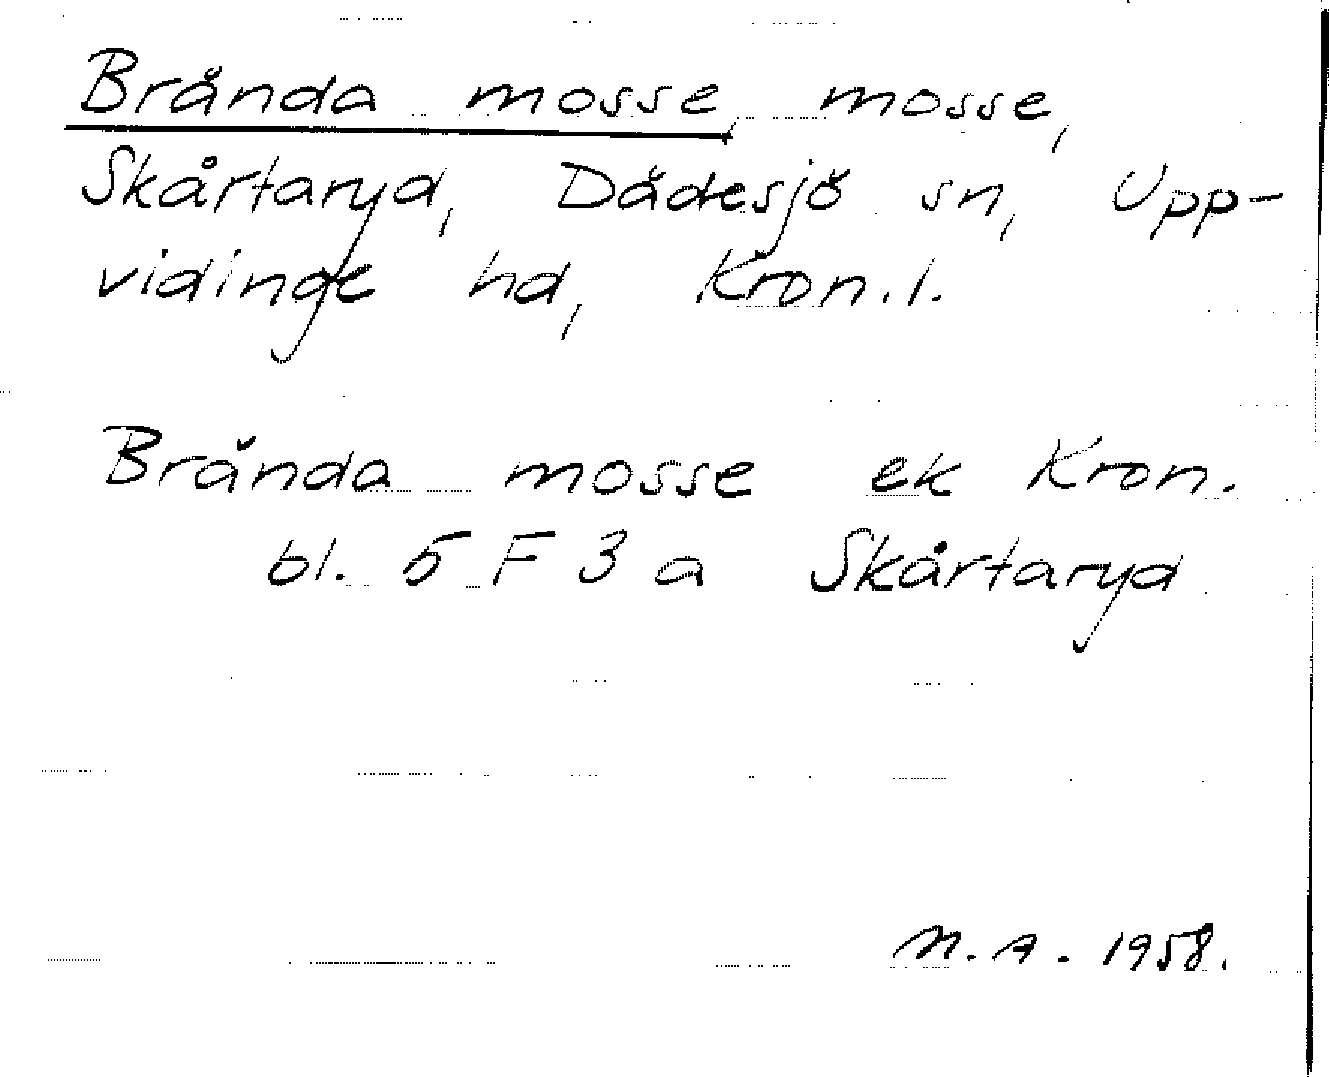 Brända mosse, mosse,
Skårtaryd, Dädesjö sn, Upp-
vidinge hd, Kron.l.
Brända mosse ek Kron.
bl. 5 F 3 a Skårtaryd
N.A. 1958.